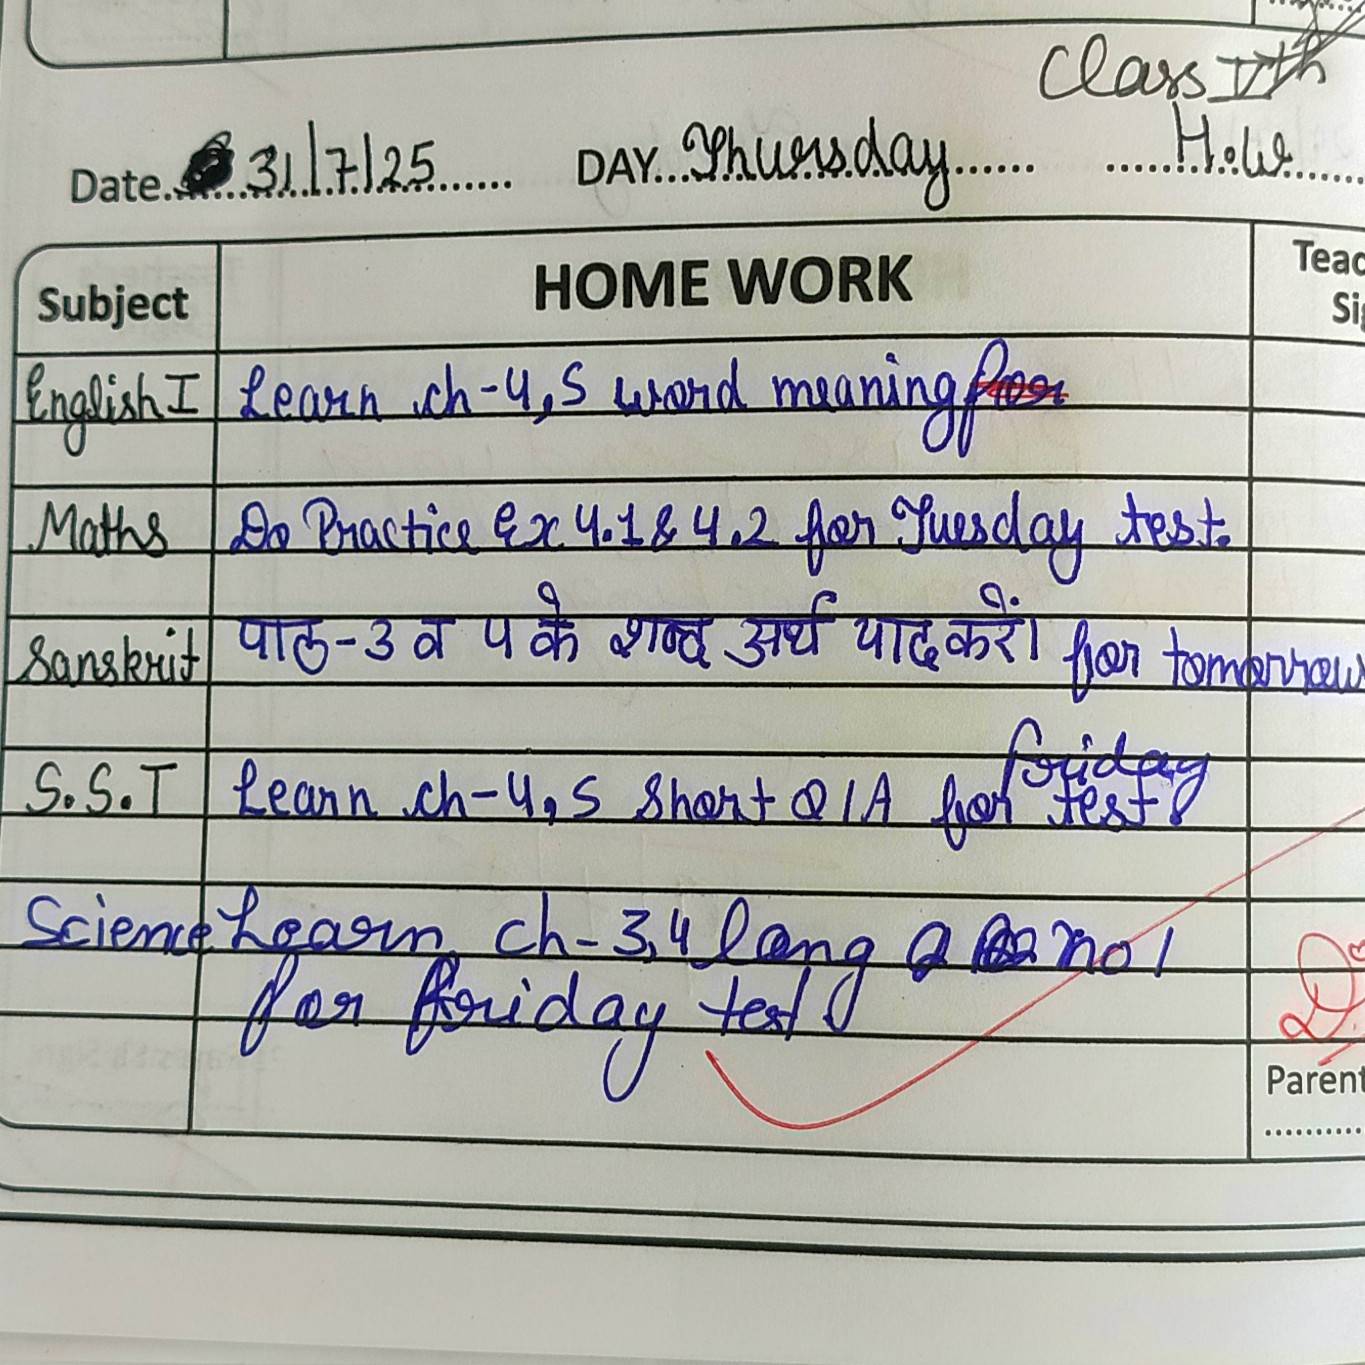 Class Vth
Date..... 31/7/25 ..... DAY... Thursday ...... H.W
Subject HOME WORK Teac
Si
English I Learn ch-4,5 word meaning
Maths Do Practice Ex 4.1 & 4.2 for Tuesday test.
Sanskrit पाठ-3 व 4 के शब्द अर्थ याद करें। for tomorrow
friday
S.S.T Learn ch-4,5 Short Q/A for test
Science Learn ch-3,4 long Q no 1
for friday test
Parent